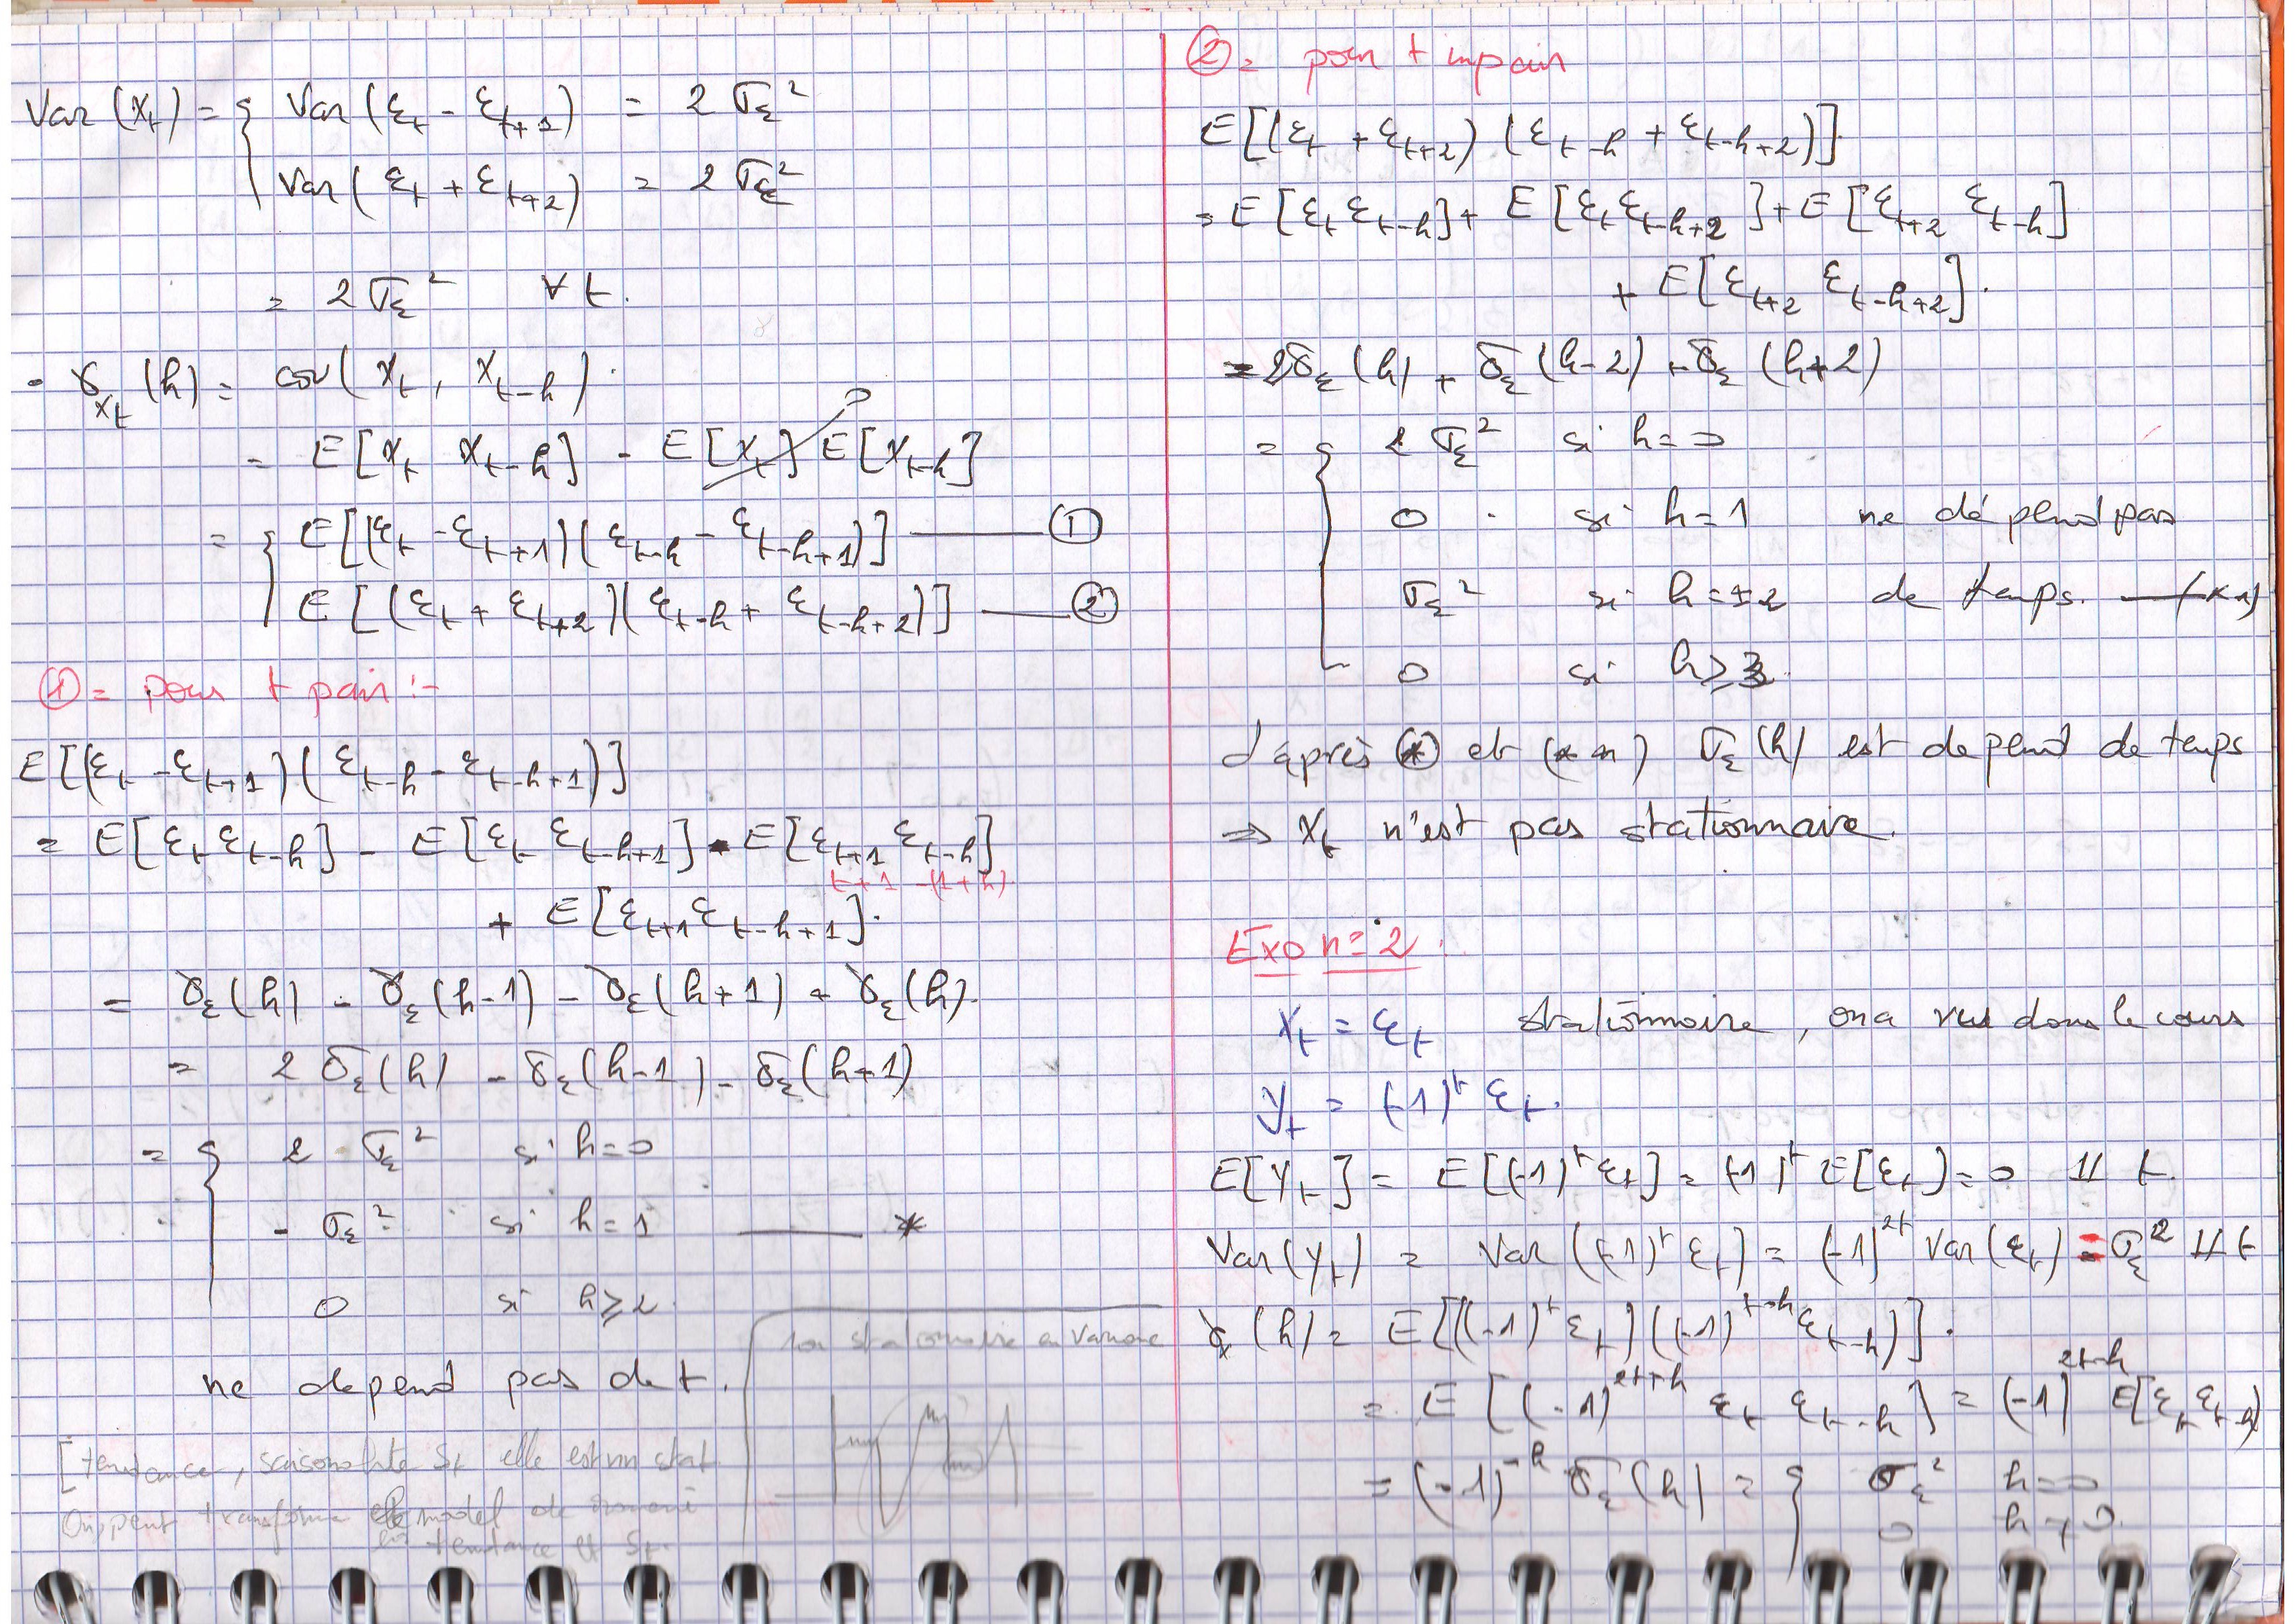 Var(X_t) = { Var(ε_t - ε_{t+1}) = 2σ_ε²
Var(ε_t + ε_{t+2}) = 2σ_ε²
= 2σ_ε² ∀t.
- γ_{X_t}(h) = cov(X_t, X_{t-h}).
= E[X_t X_{t-h}] - E[X_t] E[X_{t-h}] 0
= { E[(ε_t - ε_{t+1})(ε_{t-h} - ε_{t-h+1})] —— ①
E[(ε_t + ε_{t+2})(ε_{t-h} + ε_{t-h+2})] —— ②
①= pour t pair :-
E[(ε_t - ε_{t+1})(ε_{t-h} - ε_{t-h+1})]
= E[ε_t ε_{t-h}] - E[ε_t ε_{t-h+1}] - E[ε_{t+1} ε_{t-h}]
t+1 -(1+h)
+ E[ε_{t+1} ε_{t-h+1}].
= γ_ε(h) - γ_ε(h-1) - γ_ε(h+1) + γ_ε(h).
= 2γ_ε(h) - γ_ε(h-1) - γ_ε(h+1)
= { 2σ_ε² si h=0
- σ_ε² si h=1 —— *
0 si h≥2.
ne depend pas de t.
non stationnaire en variance
[tendance, saisonalité S_t elle est non stat
On peut transforme model de
tendance et S_t.
②= pour t impair
E[(ε_t + ε_{t+2})(ε_{t-h} + ε_{t-h+2})]
= E[ε_t ε_{t-h}] + E[ε_t ε_{t-h+2}] + E[ε_{t+2} ε_{t-h}]
+ E[ε_{t+2} ε_{t-h+2}].
= 2γ_ε(h) + γ_ε(h-2) + γ_ε(h+2)
= { 2σ_ε² si h=0
0 si h=1 ne dépend pas
σ_ε² si h=±2 de temps. —— (**)
0 si h≥3
d'après (*) et (**) σ_ε(h) est depend de temps
⇒ X_t n'est pas stationnaire.
Exo n=2 :
X_t = ε_t stationnaire, on a vu dans le cours
Y_t = (-1)^t ε_t.
E[Y_t] = E[(-1)^t ε_t] = (-1)^t E[ε_t] = 0 ⊥⊥ t.
Var(Y_t) = Var((-1)^t ε_t) = (-1)^{2t} Var(ε_t) = σ_ε² ⊥⊥ t
γ(h) = E[((-1)^t ε_t)((-1)^{t-h} ε_{t-h})].
= E[(-1)^{2t-h} ε_t ε_{t-h}] = (-1)^{2t-h} E[ε_t ε_{t-h}]
= (-1)^{-h} γ_ε(h) = { σ_ε² h=0
0 h≠0.